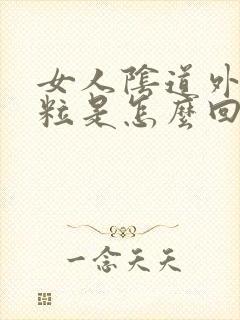 女人陰道外
粒是怎麼回
一念天天